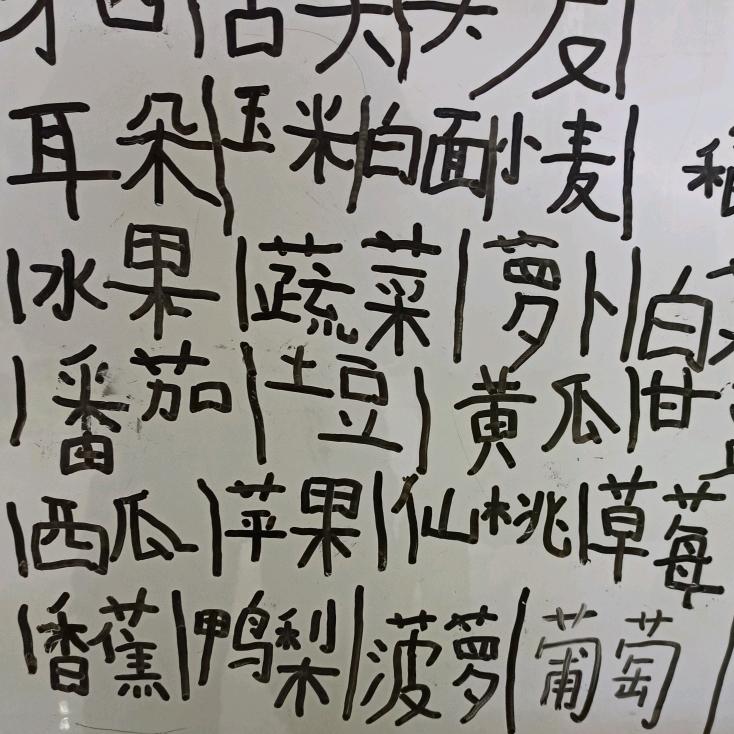 耳朵|玉米|白面|小麦|
|水果|蔬菜|萝卜|白
|番茄|土豆|黄瓜|甘
|西瓜|苹果|仙桃|草莓
|香蕉|鸭梨|菠萝|葡萄|